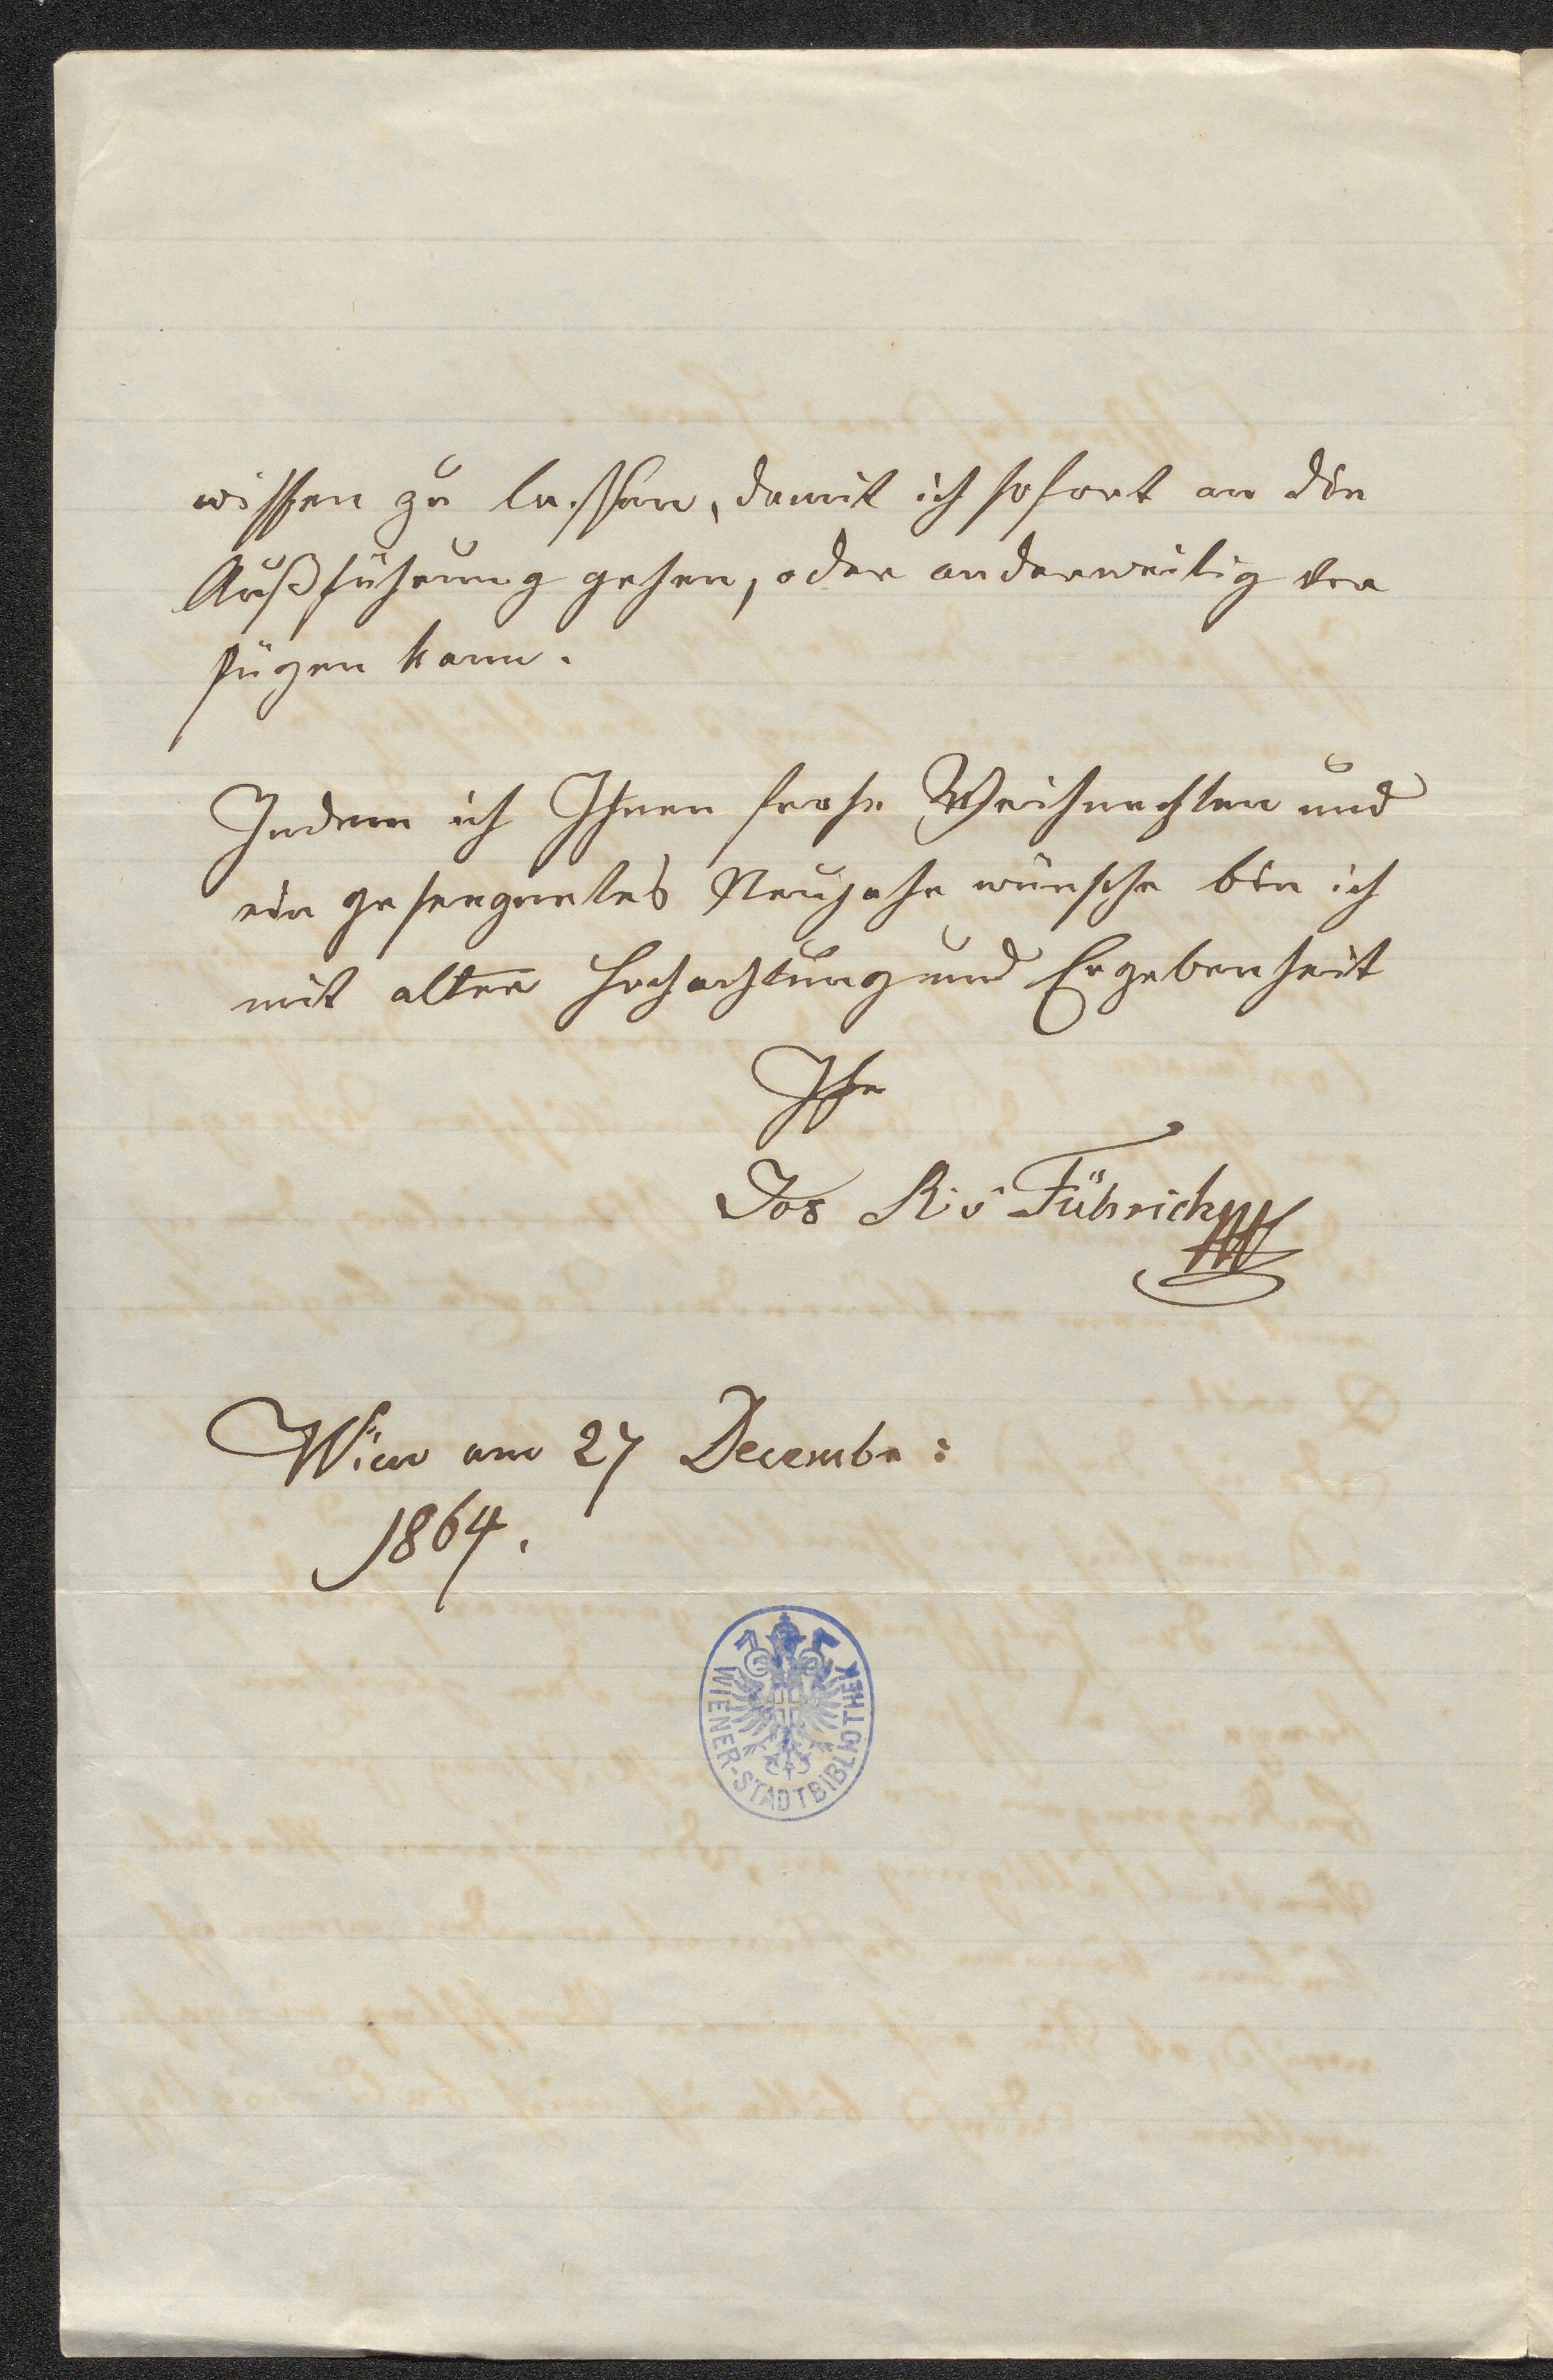 wissen zu lassen, damit ich sofort an die
Außführung gehen, oder anderweitig ver
fügen kann.
Indem ich Ihnen frohe Weihnachten und
ein gesengnetes Neujahr wünsche bin ich
mit alter Hochachtung und Ergebenheit
Ihr
Jos R: v Führich
Wien am 27 Decembr:
1864.
WIENER-STADTBIBLIOTHEK